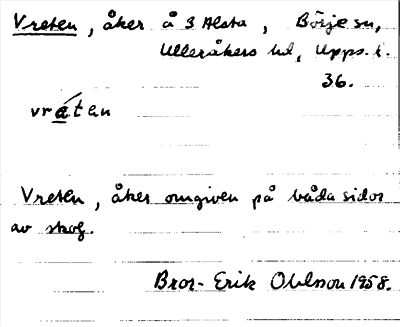 Vreten, åker å 3 Alsta, Börje sn,
Ulleråkers hd, Upps. l.
36.
vrétan
Vreten, åker omgiven på båda sidor
av skog.
Bror-Erik Ohlsson 1958.